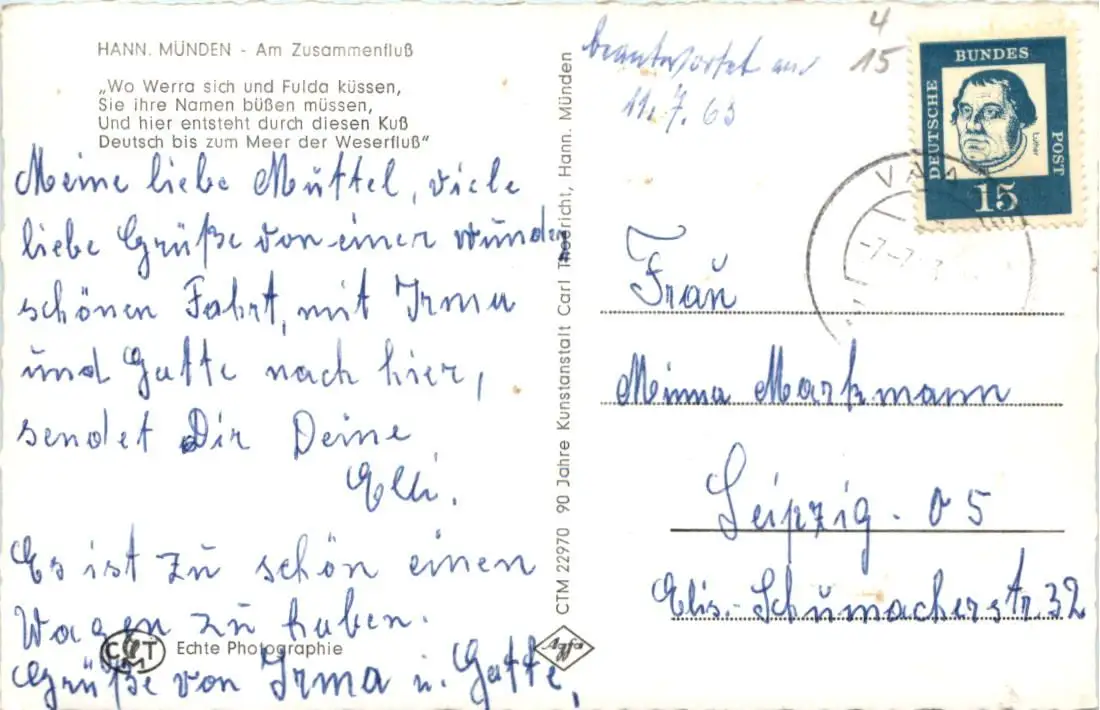 HANN. MÜNDEN - Am Zusammenfluß
„Wo Werra sich und Fulda küssen,
Sie ihre Namen büßen müssen,
Und hier entsteht durch diesen Kuß
Deutsch bis zum Meer der Weserfluß"
Meine liebe Muttel, viele
liebe Grüße von einer wunder
schönen Fahrt, mit Irma
und Gatte nach hier,
sendet Dir Deine
Elli.
Es ist zu schön einen
Wagen zu haben.
Grüße von Irma u. Gatte,
CMT
Echte Photographie
CTM 22970 90 Jahre Kunstanstalt Carl Thoericht, Hann. Münden
Agfa
beantwortet am
11. 7. 63
4
15
DEUTSCHE
BUNDES
POST
Luther
15
-7-7
Frau
Minna Markmann
Leipzig. O 5
Elis.-Schumacherstr. 32